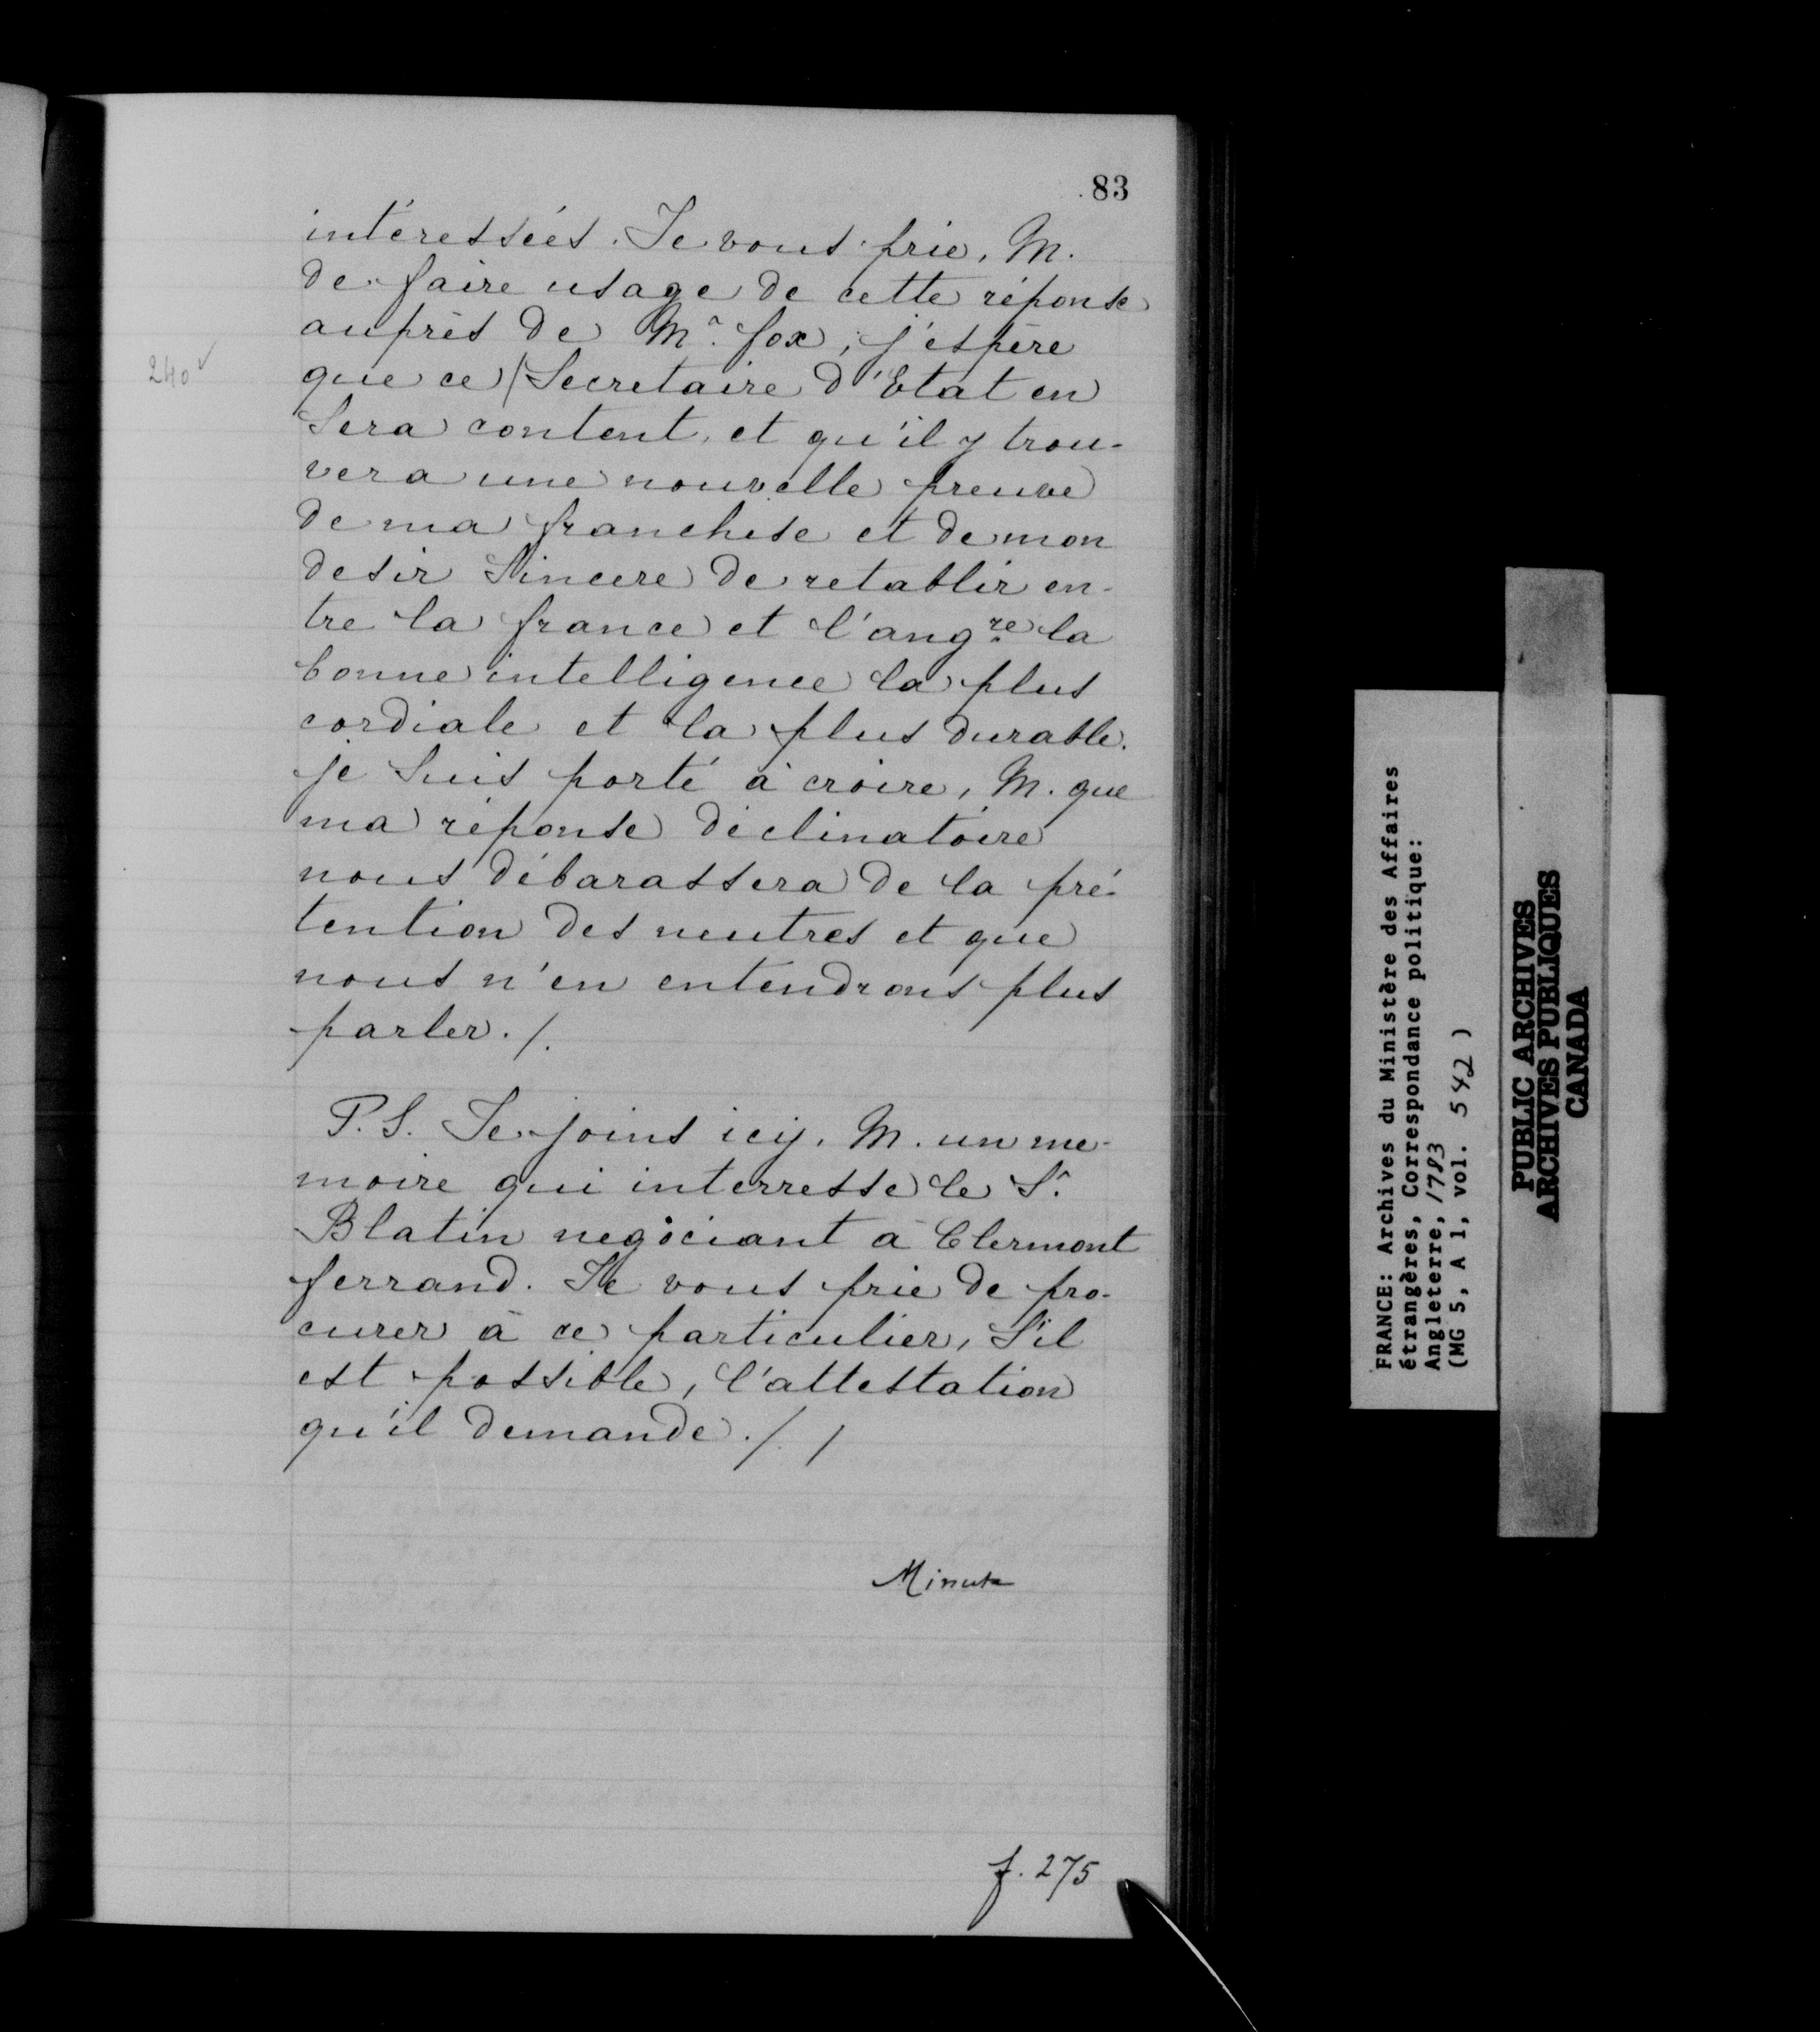 83
intéressées. Je vous prie, M.
de faire usage de cette réponse
auprès de Mr. fox, j'espère
240 ✓
que ce (Secretaire d'Etat en
Sera content, et qu'il y trou-
vera une nouvelle preuve
de ma franchise et de mon
desir Sincere de retablir en-
tre la france et l'angre. la
bonne intelligence la plus
cordiale et la plus durable.
je Suis porté à croire, M. que
ma réponse déclinatoire
nous débarassera de la pré-
tention des neutres et que
nous n'en entendrons plus
parler. /.
P. S. Je joins icy, M. un me-
moire qui interresse le Sr.
Blatin negociant à Clermont
ferrand. Je vous prie de pro-
curer à ce particulier, S'il
est possible, l'attestation
qu'il demande. /. /
Minute
f. 275
FRANCE: Archives du Ministère des Affaires
étrangères, Correspondance politique:
Angleterre, 1783
(MG 5, A 1, vol. 542 )
PUBLIC ARCHIVES
ARCHIVES PUBLIQUES
CANADA